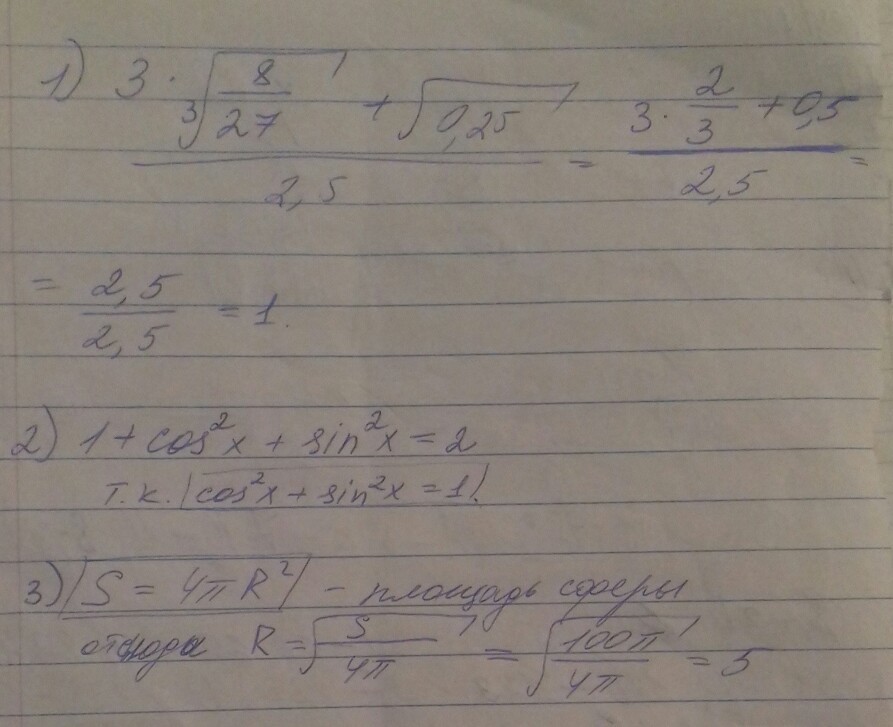 1) (3 · ∛(8/27) + √0,25) / 2,5 = (3 · 2/3 + 0,5) / 2,5 =
= 2,5/2,5 = 1.
2) 1 + cos²x + sin²x = 2
т.к. |cos²x + sin²x = 1|.
3) |S = 4πR²| - площадь сферы
отсюда R = √(S/4π) = √(100π/4π) = 5